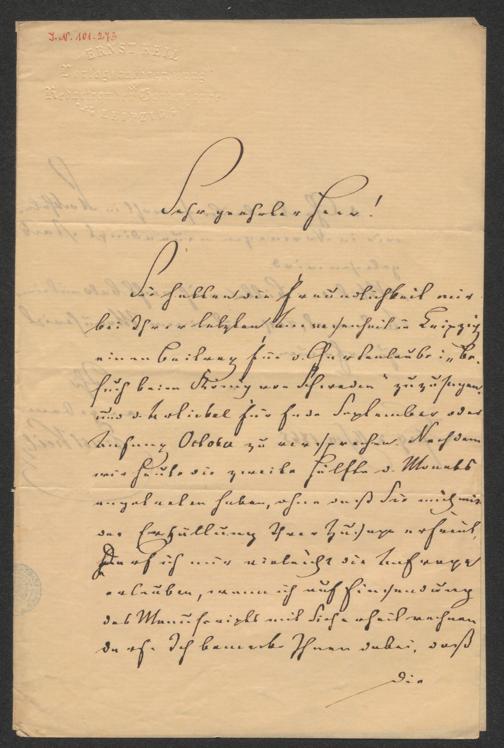 I.N. 101.273
ERNST KEIL
Verlagsbuchhandlung
LEIPZIG
Sehr geehrter Herr!
Sie hatten die Freundlichkeit mir
bei Ihrer letzten Anwesenheit in Leipzig
einen Beitrag für d. Gartenlaube: „Be-
such beim König von Schweden“ zuzusagen
und d. Artikel für Ende September oder
Anfang October zu versprechen. Nachdem
wir heute die zweite Hälfte d. Monats
angetreten haben, ohne daß Sie mich mit
der Erfüllung Ihrer Zusage erfreut,
darf ich mir vielleicht die Anfrage
erlauben, wann ich auf Einsendung
des Manuscripts mit Sicherheit rechnen
darf. Ich bemerke Ihnen dabei, daß
die